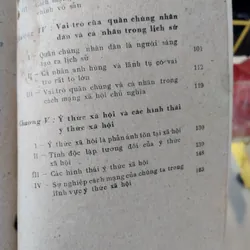 chính vô sản
IV Vai trò của quần chúng nhân
dân và cá nhân trong lịch sử
I — Quần chúng nhân dân là người sáng
tạo ra lịch sử 112
II — Cá nhân anh hùng và lãnh tụ có vai
trò rất to lớn 119
III — Vai trò quần chúng và cá nhân trong
cách mạng xã hội chủ nghĩa
Chương V: Ý thức xã hội và các hình thái
ý thức xã hội 139
I — Ý thức xã hội là phản ánh tồn tại xã hội 139
II — Tính độc lập tương đối của ý thức
xã hội
III — Các hình thái ý thức xã hội
IV — Sự nghiệp cách mạng của chúng ta trong
lĩnh vực ý thức xã hội